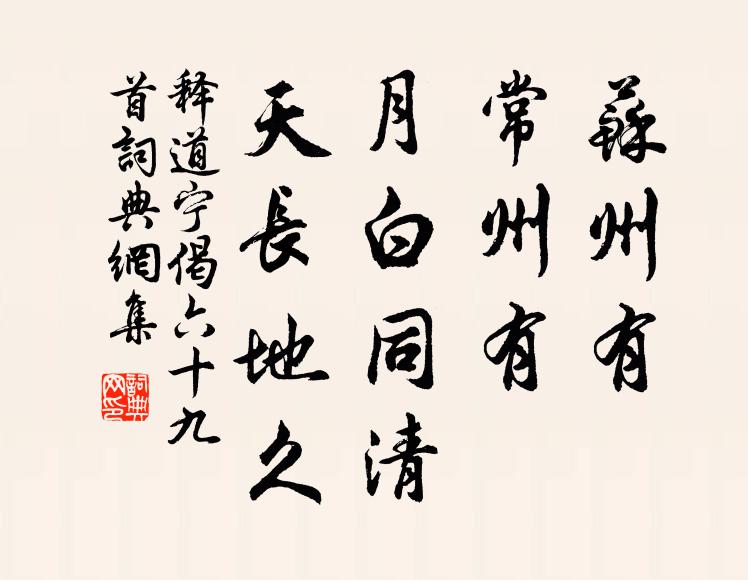 蘇州有
常州有
月白同清
天長地久
释道宁偈六十九
首詞典網集
詞典
网印